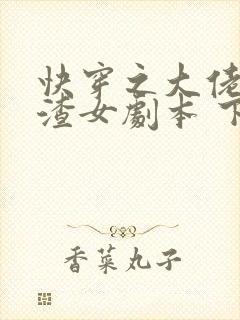 快穿之大佬
渣女剧本 下
香菜丸子